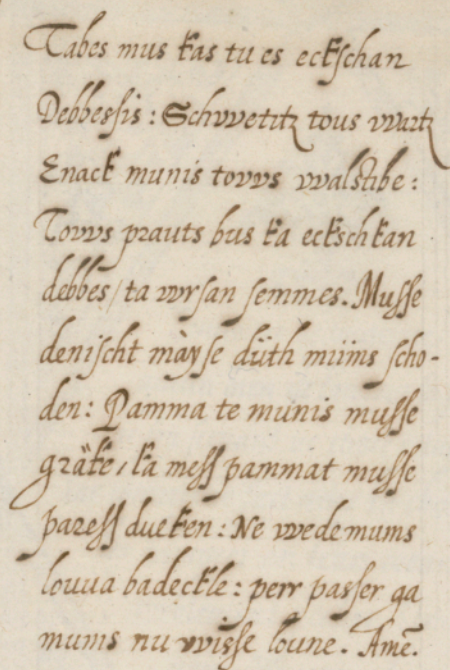 Tabes mus kas tu es eckſchan
Debbessis : Schvvetitz tous vvartz
Enack munis tovvs vvalstibe :
Tovvs prauts bus ka eckschkan
debbes / ta vvrsan ſemmes. Muſſe
deniſcht màyſe düth müms ſcho-
den : Pamma te munis muſſe
gräke, ka meſſ pammat muſſe
pareſſ dueken : Ne vvede mums
louua badeckle : perr paſſer ga
mums nu vviſſe loune. Amē.